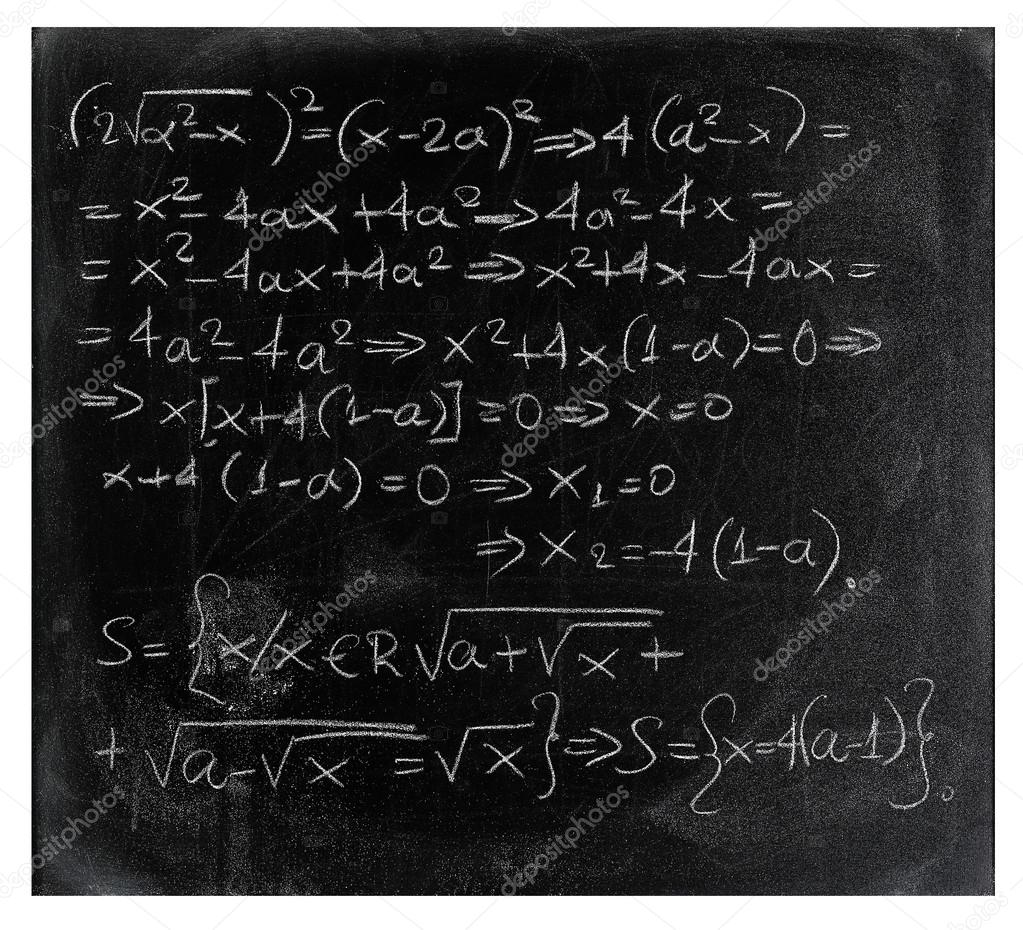 (2√a²-x)²=(x-2a)²⇒4(a²-x)=
=x²-4ax+4a²⇒4a²-4x=
=x²-4ax+4a²⇒x²+4x-4ax=
=4a²-4a²⇒x²+4x(1-a)=0⇒
⇒x[x+4(1-a)]=0⇒x=0
x+4(1-a)=0⇒x₁=0
⇒x₂=-4(1-a).
S={x/x∈R√a+√x+
+√a-√x=√x}⇒S={x=4(a-1)}.
depositphotos